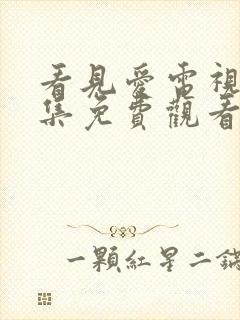 看見愛電視
集免費觀看
一顆紅星二鍋